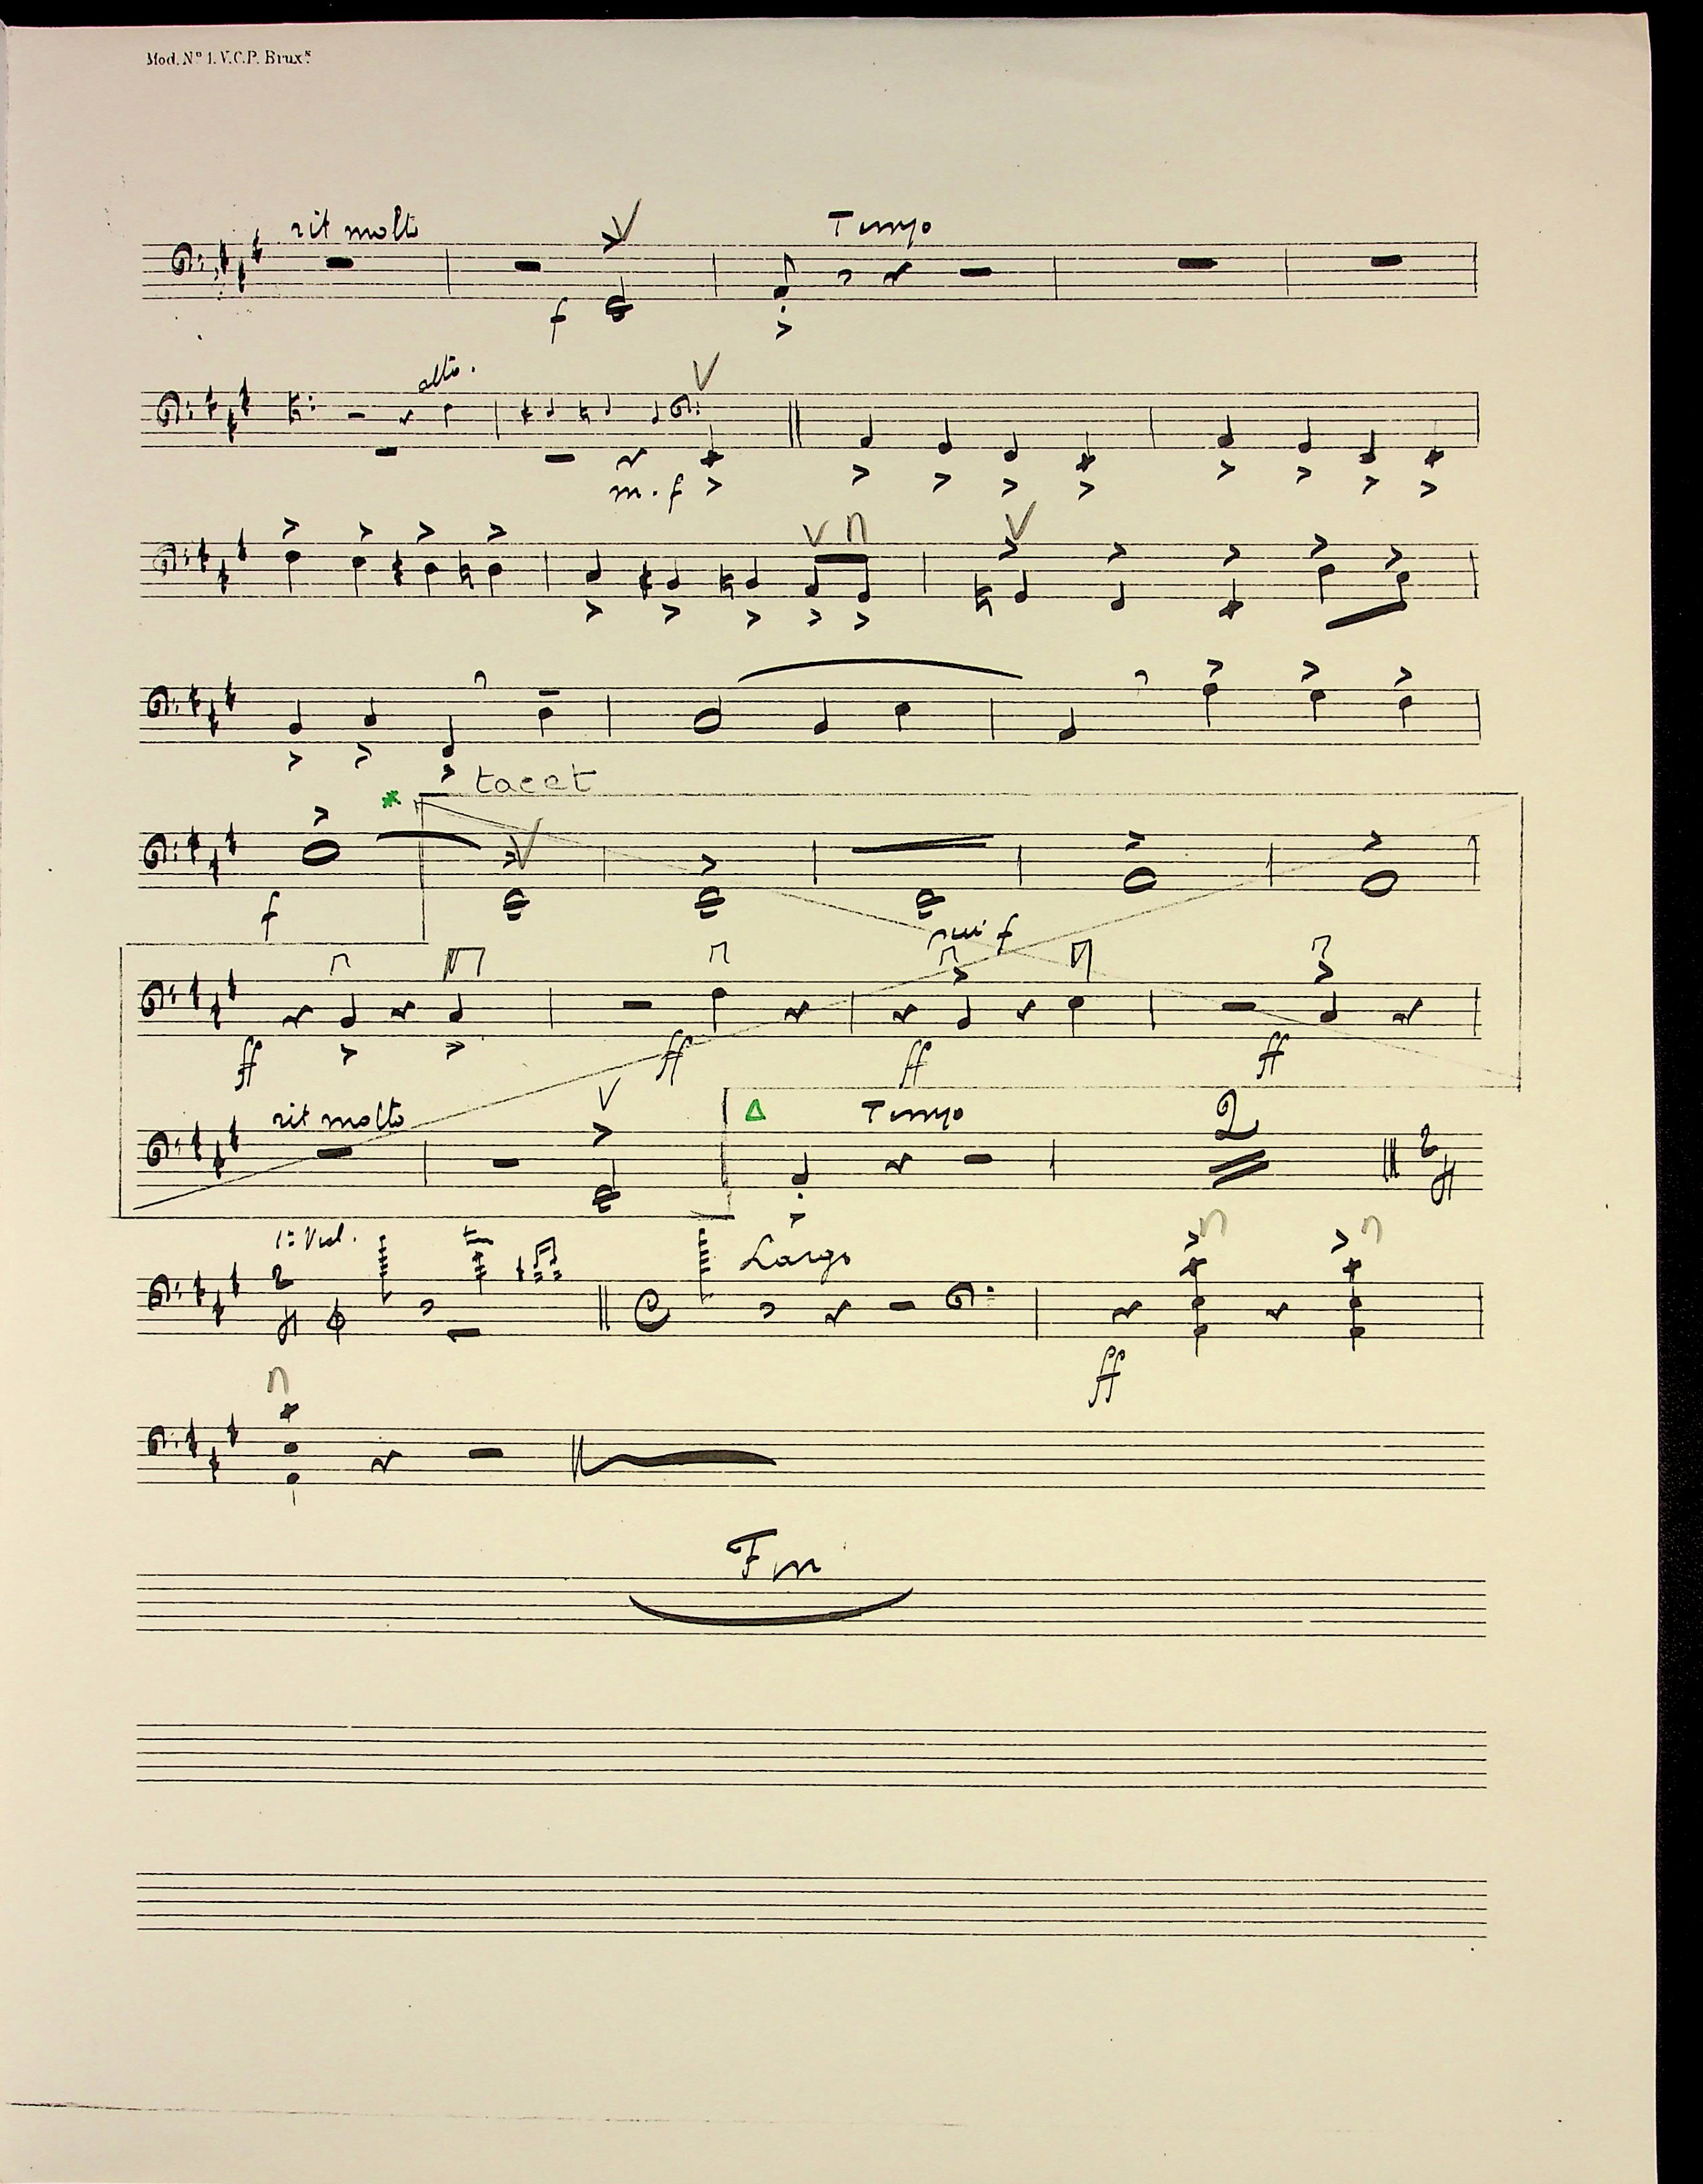 Mod. Nº 1. V.C.P. Brux.s
rit molto Tempo
f
alto.
m.f
tacet
f
più f
ff ff ff ff
rit molto Tempo 2
2
1º Viol. Largo
2
ff
Fin